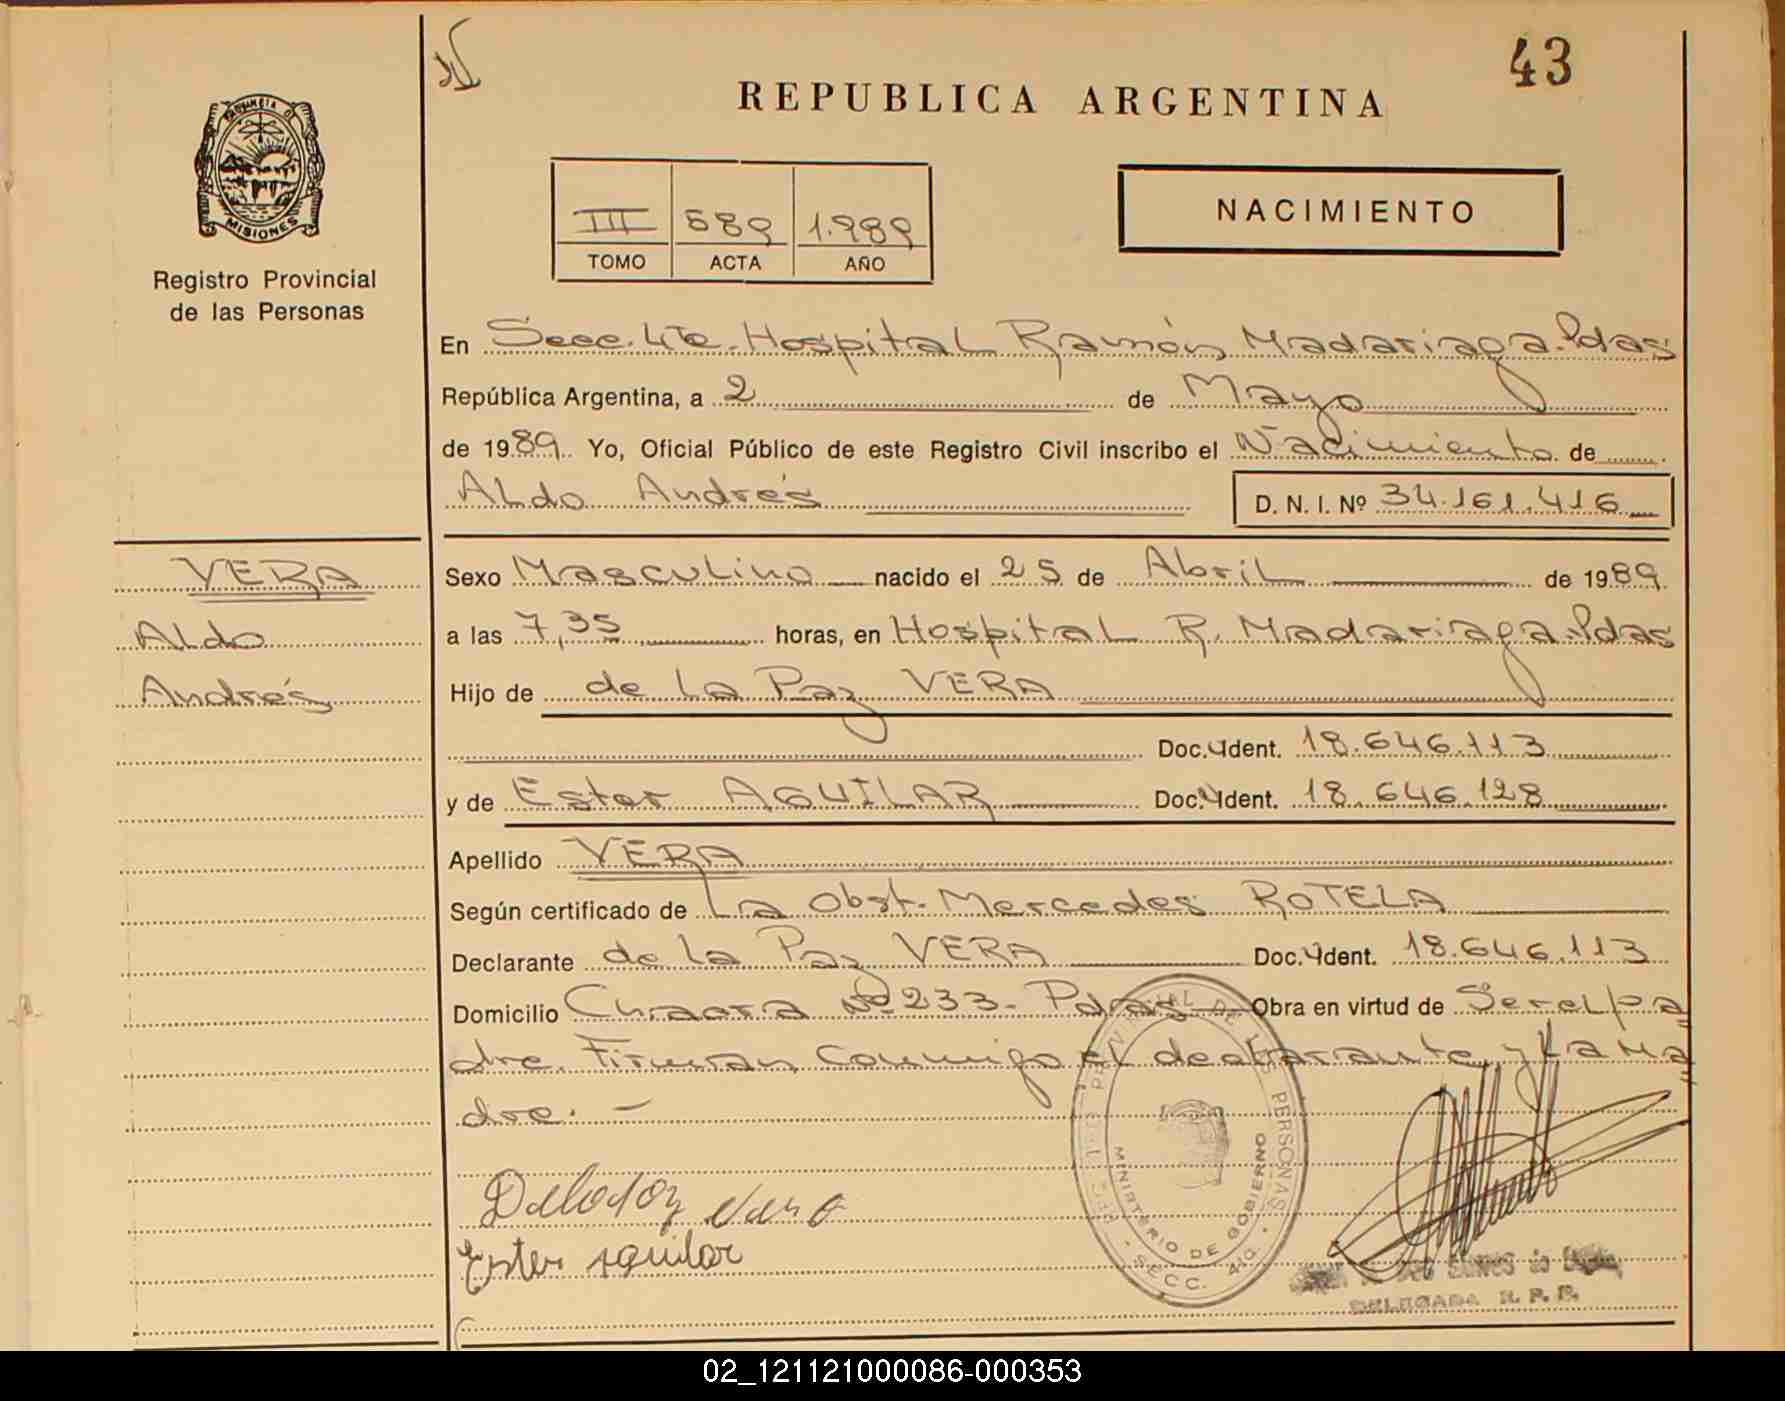 43
REPUBLICA ARGENTINA
PROVINCIA D
MISIONES
Registro Provincial
de las Personas
III 589 1.989
TOMO ACTA AÑO
NACIMIENTO
En Secc. 4ta. Hospital Ramón Madariaga-Pdas
República Argentina, a 2 de Mayo
de 1989. Yo, Oficial Público de este Registro Civil inscribo el Nacimiento de
Aldo Andrés D. N. I. Nº 34.161.416
VERA
Aldo
Andrés
Sexo Masculino nacido el 25 de Abril de 1989
a las 7,35 horas, en Hospital R. Madariaga-Pdas
Hijo de de La Paz VERA
Doc. Ident. 18.646.113
y de Ester AGUILAR Doc. Ident. 18.646.128
Apellido VERA
Según certificado de La Obst. Mercedes ROTELA
Declarante de La Paz VERA Doc. Ident. 18.646.113
Domicilio Chacra Nº 233- Pdas Obra en virtud de Ser el pa
dre. Firman Conmigo el declarante y La Ma
dre. -
Delapaz Vera
Ester Aguilar
PERSONAS
MINISTERIO DE GOBIERNO
SECC. 4ta.
DELEGADA R. P. P.
02_121121000086-000353